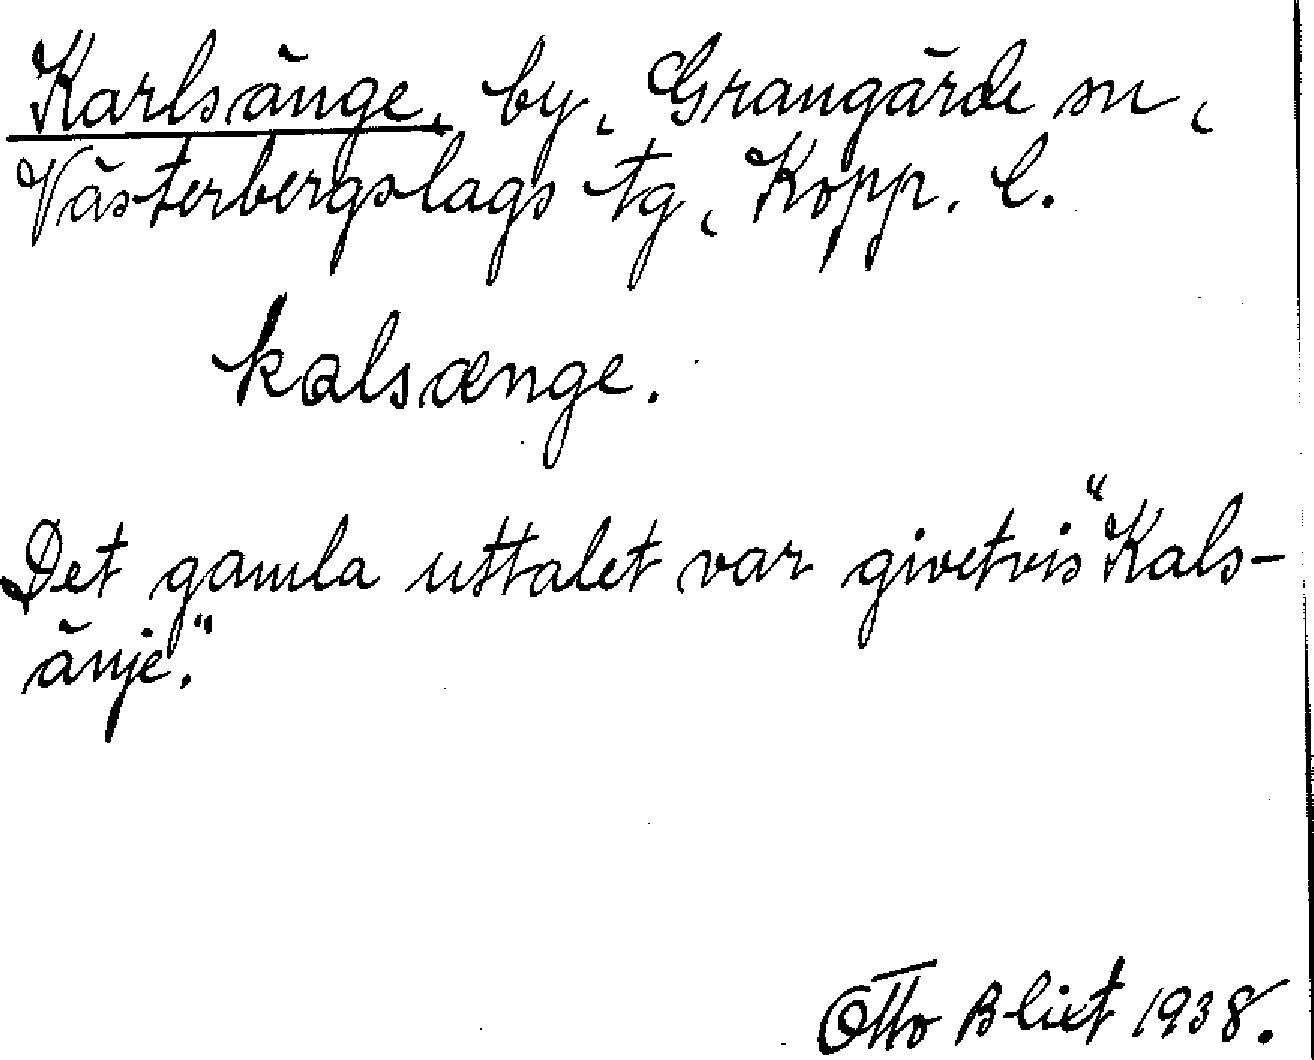 Karlsänge, by, Grangärde sn,
Västerbergslags tg, Kopp. l.
kalsænge.
Det gamla uttalet var givetvis "Kals-
änje."
Otto Blixt 1938.